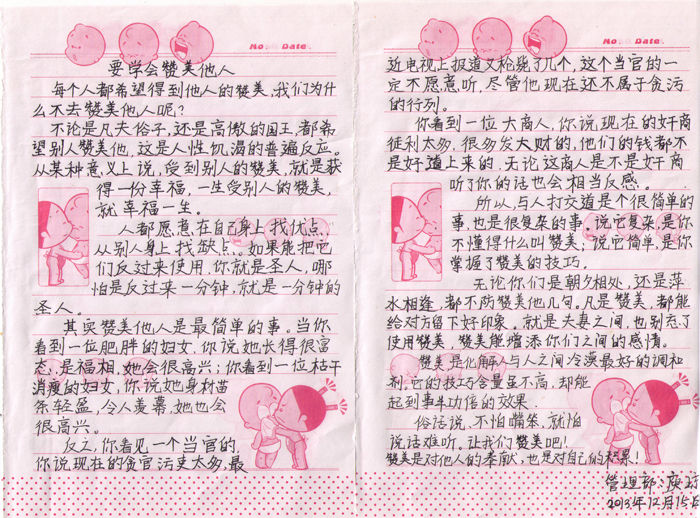 No. Date.
要学会赞美他人
每个人都希望得到他人的赞美,我们为什
么不去赞美他人呢?
不论是凡夫俗子,还是高傲的国王,都希
望别人赞美他,这是人性饥渴的普遍反应。
从某种意义上说,受到别人的赞美,就是获
得一份幸福,一生受别人的赞美,
就幸福一生。
人都愿意在自己身上找优点,
从别人身上找缺点。如果能把它
们反过来使用,你就是圣人,哪
怕是反过来一分钟,就是一分钟的
圣人。
其实赞美他人是最简单的事。当你
看到一位肥胖的妇女,你说她长得很富
态,是福相,她会很高兴;你看到一位枯干
消瘦的妇女,你说她身材苗
条轻盈,令人羡慕,她也会
很高兴。
反之,你看见一个当官的,
你说现在的贪官污吏太多,最
No. Date.
近电视上报道又枪毙了几个,这个当官的一
定不愿意听,尽管他现在还不属于贪污
的行列。
你看到一位大商人,你说现在的奸商
徒利太多,很多发大财的,他们的钱都不
是好道上来的,无论这商人是不是奸商
听了你的话也会相当反感。
所以,与人打交道是个很简单的
事,也是很复杂的事。说它复杂,是你
不懂得什么叫赞美;说它简单,是你
掌握了赞美的技巧。
无论你们是朝夕相处,还是萍
水相逢,都不妨赞美他几句。凡是赞美,都能
给对方留下好印象。就是夫妻之间,也别忘了
使用赞美,赞美能增添你们之间的感情。
赞美是化解人与人之间冷漠最好的调和
剂,它的技巧含量虽不高,却能
起到事半功倍的效果.
俗话说,不怕嘴笨,就怕
说话难听,让我们赞美吧!
赞美是对他人的奉献,也是对自己的积累!
管理部:庾
2013年12月15日